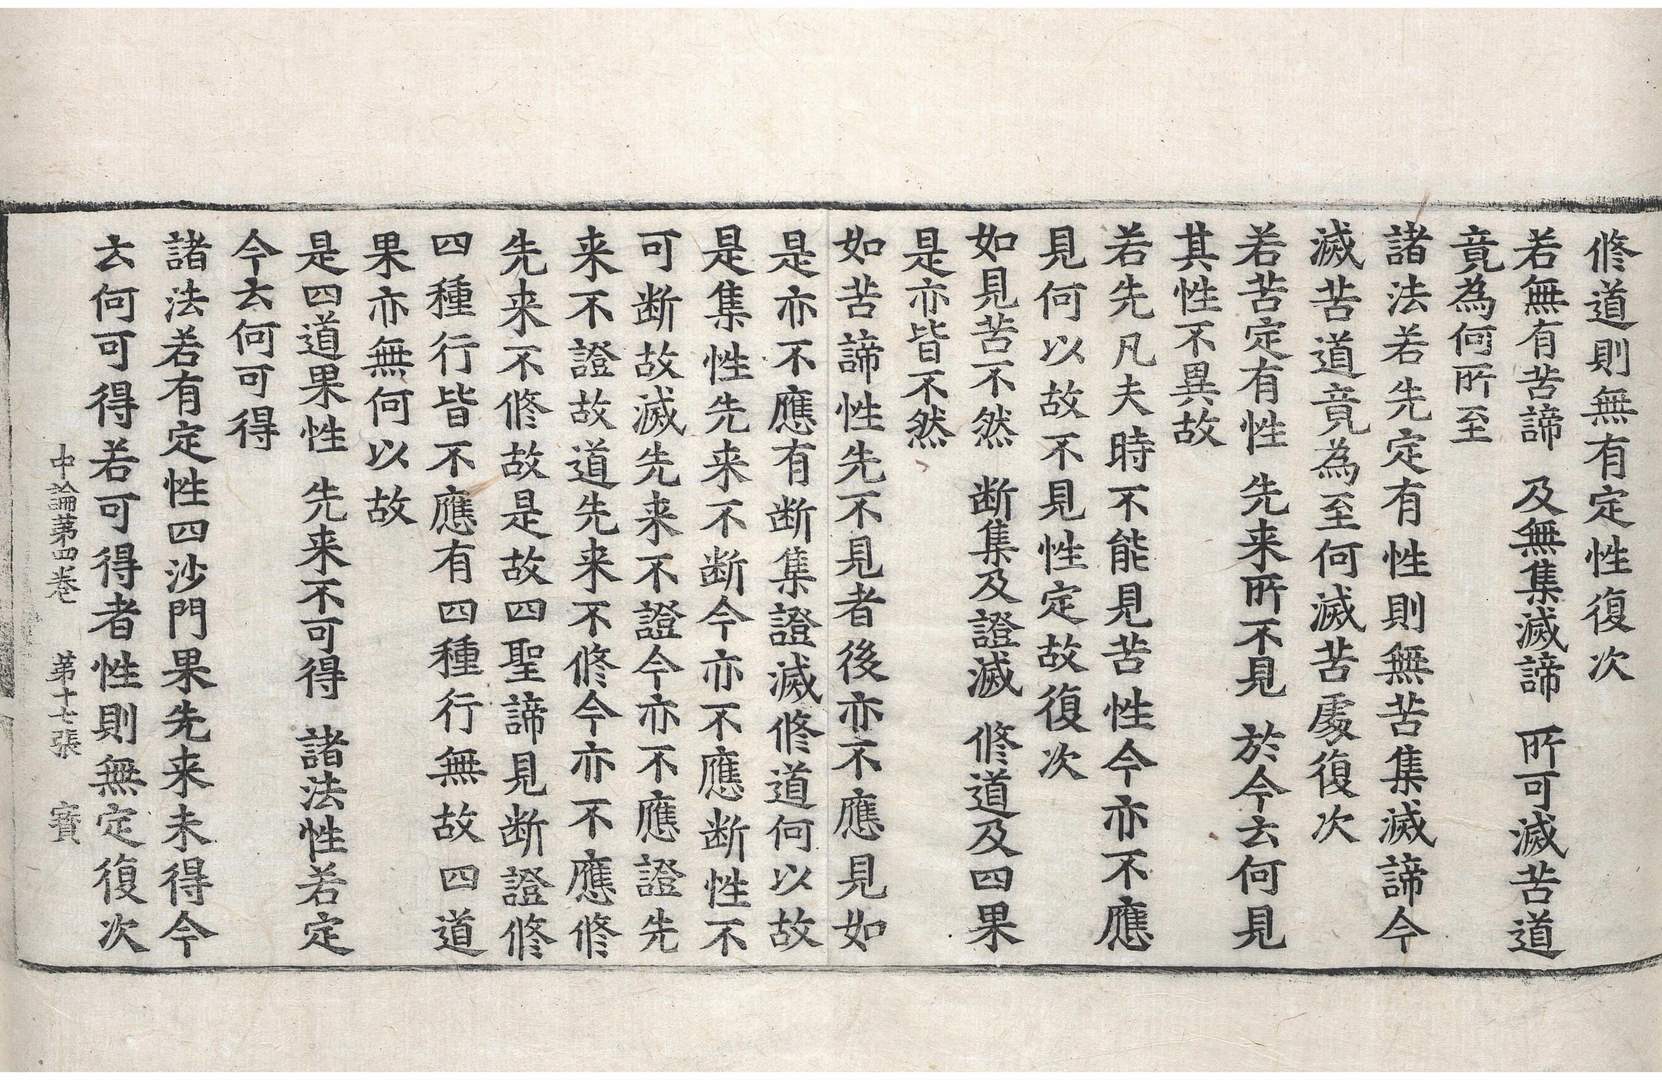 修道則無有定性復次
若無有苦諦 及無集滅諦 所可滅苦道
竟為何所至
諸法若先定有性則無苦集滅諦今
滅苦道竟為至何滅苦處復次
若苦定有性 先来所不見 於今去何見
其性不異故
若先凡夫時不能見苦性今亦不應
見何以故不見性定故復次
如見苦不然 断集及證滅 修道及四果
是亦皆不然
如苦諦性先不見者後亦不應見如
是亦不應有断集證滅修道何以故
是集性先来不断今亦不應断性不
可断故滅先来不證今亦不應證先
来不證故道先来不修今亦不應修
先来不修故是故四聖諦見断證修
四種行皆不應有四種行無故四道
果亦無何以故
是四道果性 先来不可得 諸法性若定
今去何可得
諸法若有定性四沙門果先来未得今
去何可得若可得者性則無定復次
中論第四卷 第十七張 寳